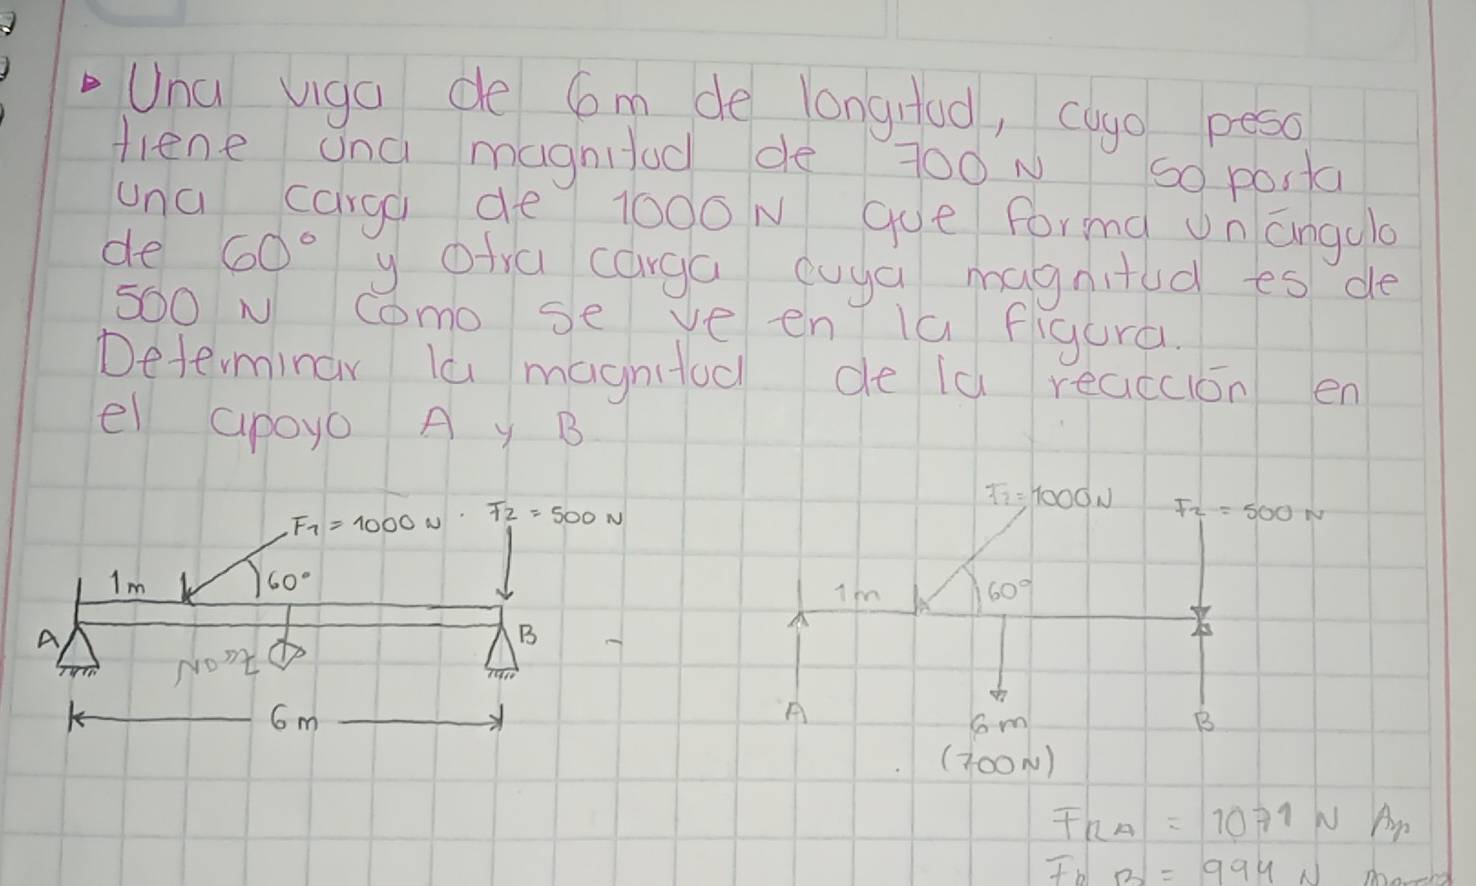 Una viga de 6m de longitud, cuyo peso
tiene una magnitud de 700 N soporta
una carga de 1000 N que forma un ángulo
de 60° y otra carga cuya magnitud es de
500 N como se ve en la figura.
Determinar la magnitud de la reacción en
el apoyo A y B
F1 = 1000 N
F2 = 500 N
1m
60°
A
B
6m
= 1000N
F2 = 500 N
1m
60°
A
6m
B
(700N)
FRA = 1071 N
B = 994 N